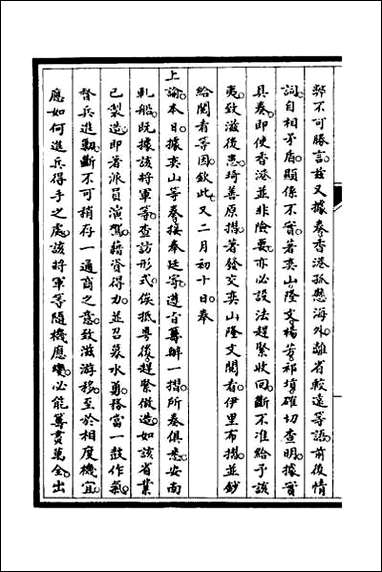 弊不可勝言茲又據奏香港孤懸海外離省較遠等語前後情
詞自相矛盾顯係不實著奕山隆文楊芳祁𡎴確切查明據實
具奏即使香港並非險要亦必設法趕緊收回斷不准給予該
夷致滋後患琦善原摺著發交奕山隆文閱看伊里布摺並鈔
給閱看等因欽此又二月初十日奉
上諭本日據奕山等奏接奉廷寄遵旨籌辦一摺所奏俱悉安南
軋船既據該將軍等查訪形式俟抵粵後趕緊倣造如該省業
已製造即著派員演駕藉資得力並召募水勇務當一鼓作氣
督兵進剿斷不可稍存一通商之意致滋游移至於相度機宜
應如何進兵得手之處該將軍等隨機應變必能籌畫萬全出